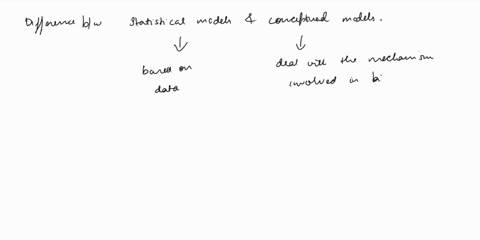 Difference b/w statistical models & conceptual models.
based on
data
deal with the mechanism
involved in bi